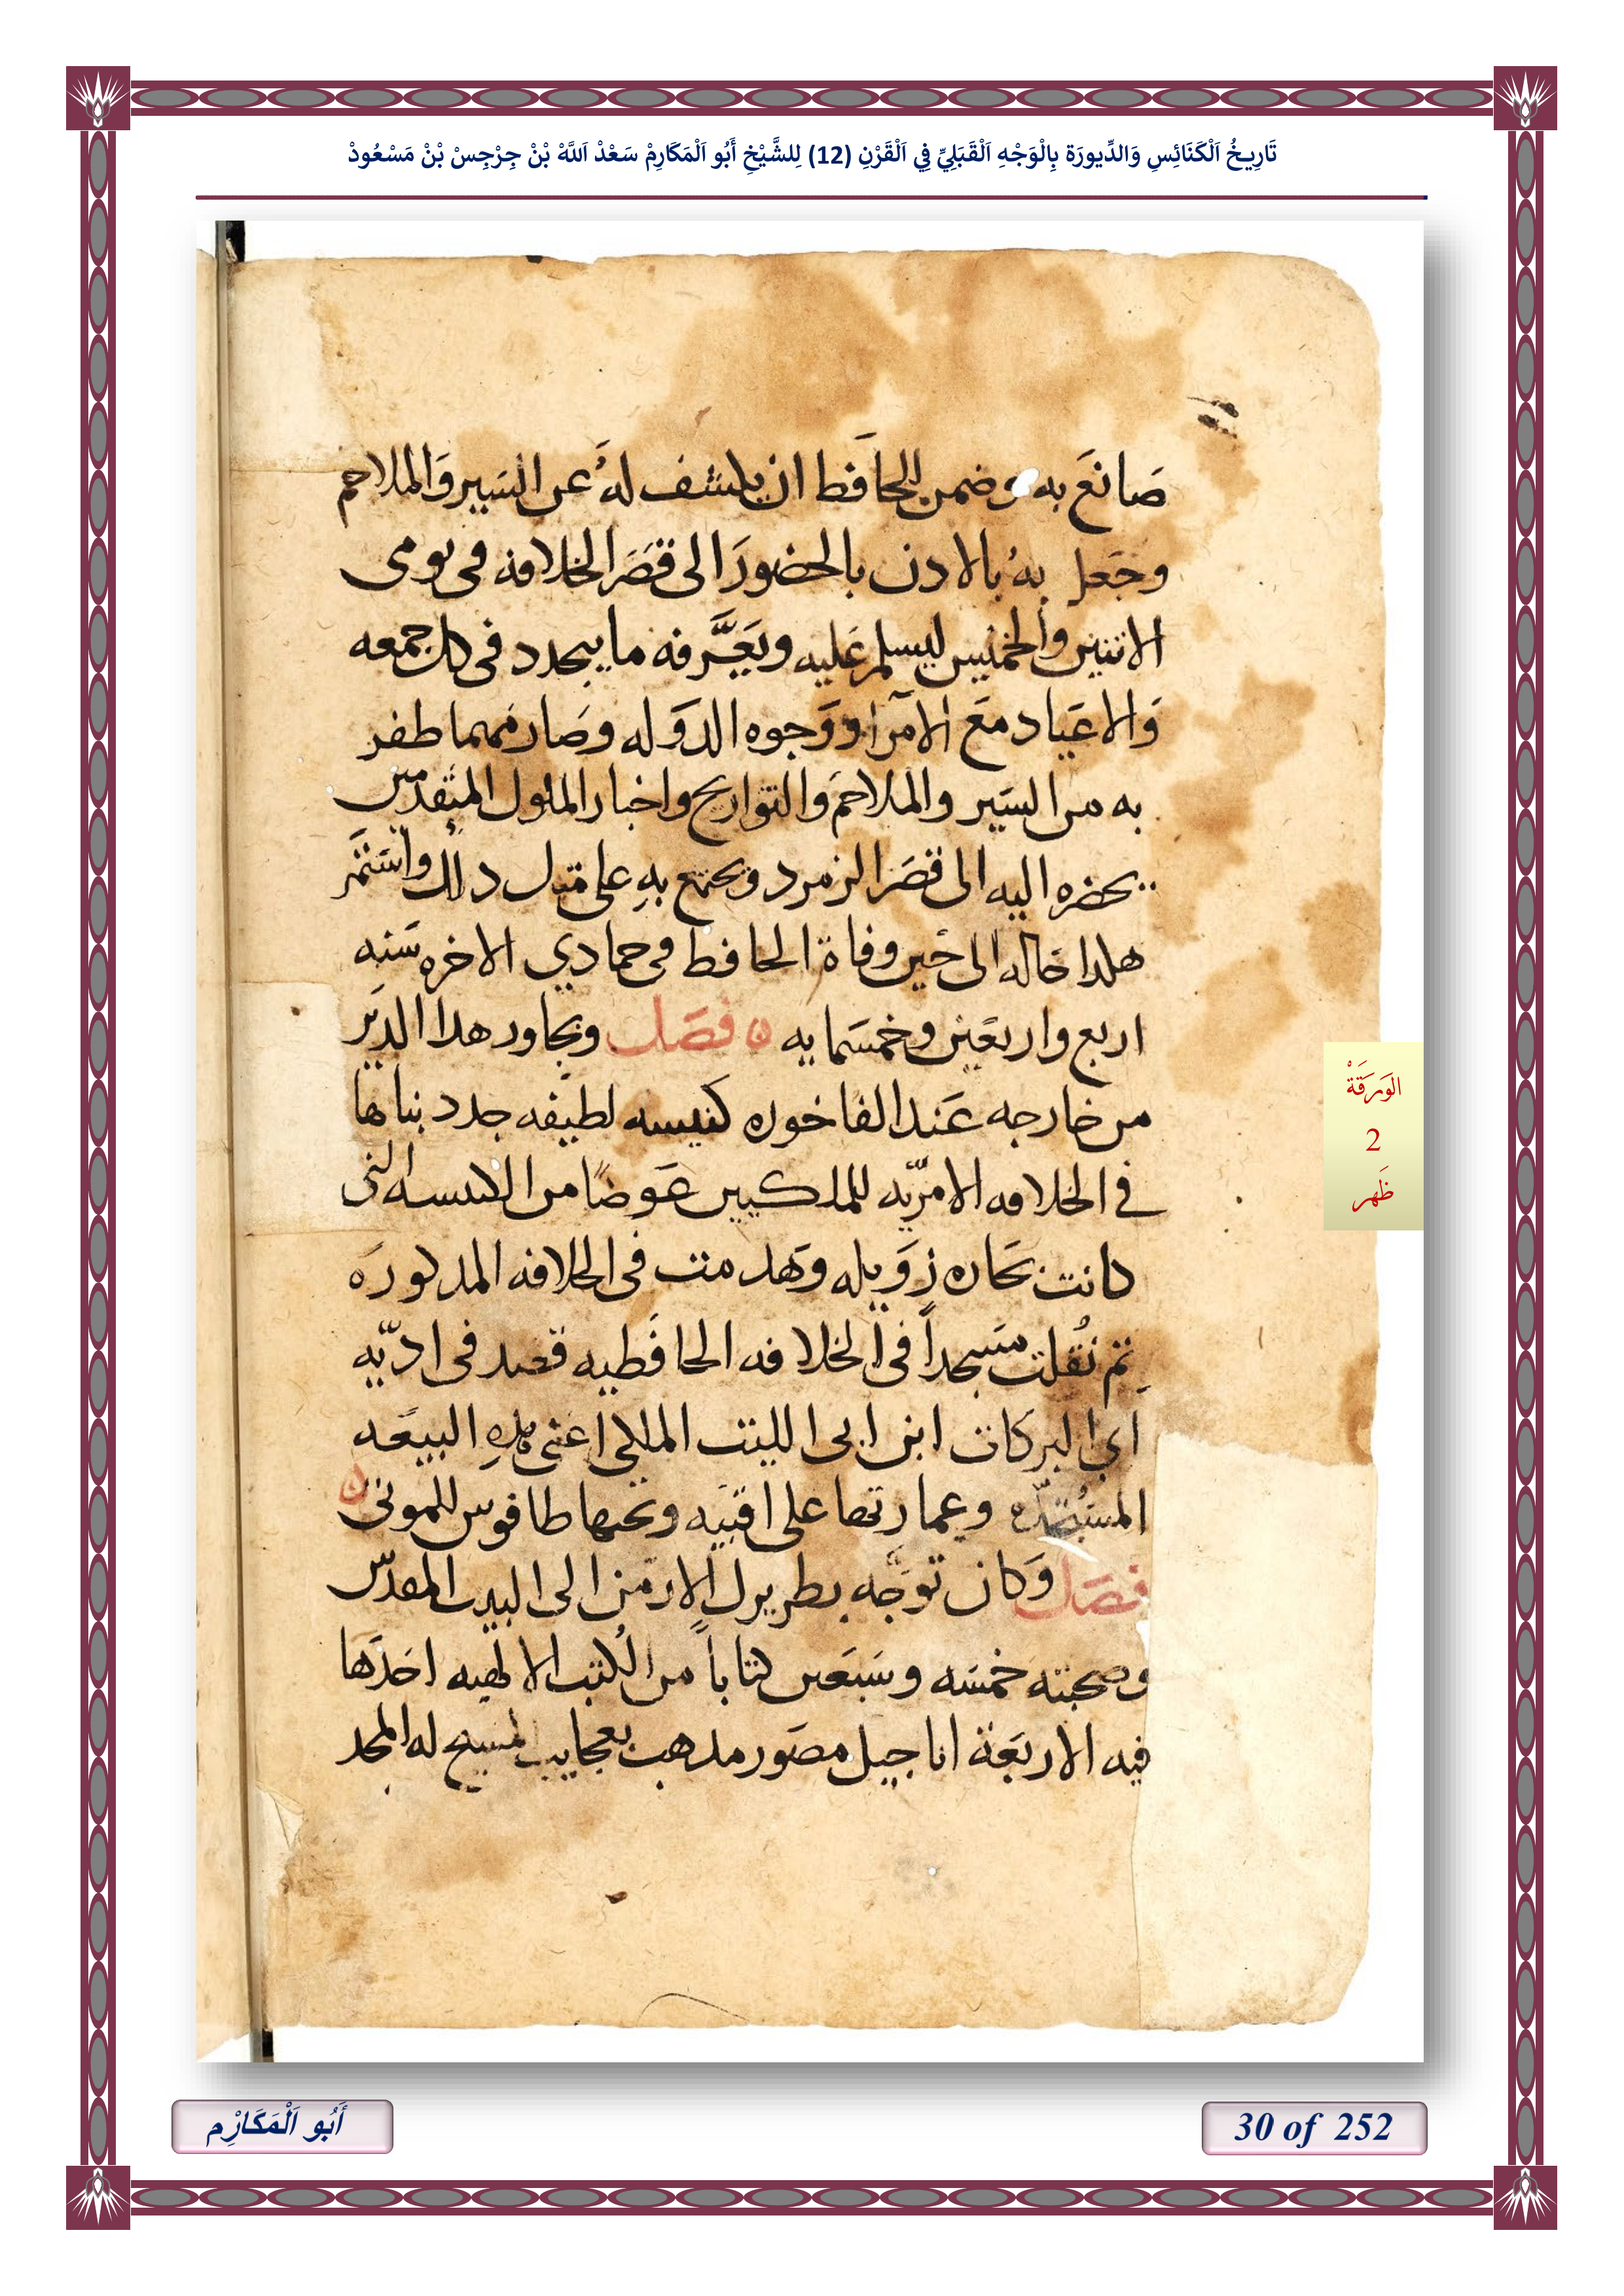 تَارِيخُ اَلْكَنَائِسِ وَالدِّيورَة بِالْوَجْهِ اَلْقَبَلِيِّ فِي اَلْقَرْنِ (12) لِلشَّيْخِ أَبُو اَلْمَكَارِمْ سَعْدْ اَللَّهْ بْنْ جِرْجِسْ بْنْ مَسْعُودْ
صَانعَ به وضمن للحافظ ان يكشف لهُ عن السَير وَالملاحم
وجَعل بهُ بالادن بالحضورَ الى قصَر الخلافه فى يومى
الاتنين والخميس ليسلم عَليه ويَعَّرفه ما يتجدد فى كل جمعه
وَالاعَياد مَع الامَرا ووَجوه الدوَله وصَار مهما ظفر
به من السَير والملاحَم وَالتواريخ واخبار الملوك المتقدمين
يحضره اليه الى قصَر الزمرد ويجتمع بهِ على متل دلك وانستَمر
هكدا حَاله الى حَين وفاة الحافظ فى جمادي الاخره سَنه
اربع واربعَين وخمسَمايه ن فصَل ويجاور هدا الديَر
من خارجه عَند الفاخوره كنيسه لطيفه جدد بناها
في الخلافه الامرّيه للملكيين عَوضاً من الكنيسه التى
كانت بحَاره زوَيله وَهدمت فى الخلافه المدكورَه
تم نُقلت مسَجداً فى الخلافه الحافظَيه قصد فى ادّيه
ابي البركات ابن ابى الليت الملكي اعنى هدهِ البيعَه
المسُتجدّه وعمارتها على اقبيَه وتحتها طافوس للموتى ن
فصَل وَكان توجَّه بطريرك الارمَن الى البيت المقدّس
وصحبته خمسَه وسَبعَين كتاباً من الكُتب الالهيه احَدَها
فيه الاربعَة اناجيل مصَور مدهب بعجايب المسيح له المجد
الوَرَقَةْ
2
ظَهر
أَبُو اَلْمَكَارِْم
30 of 252